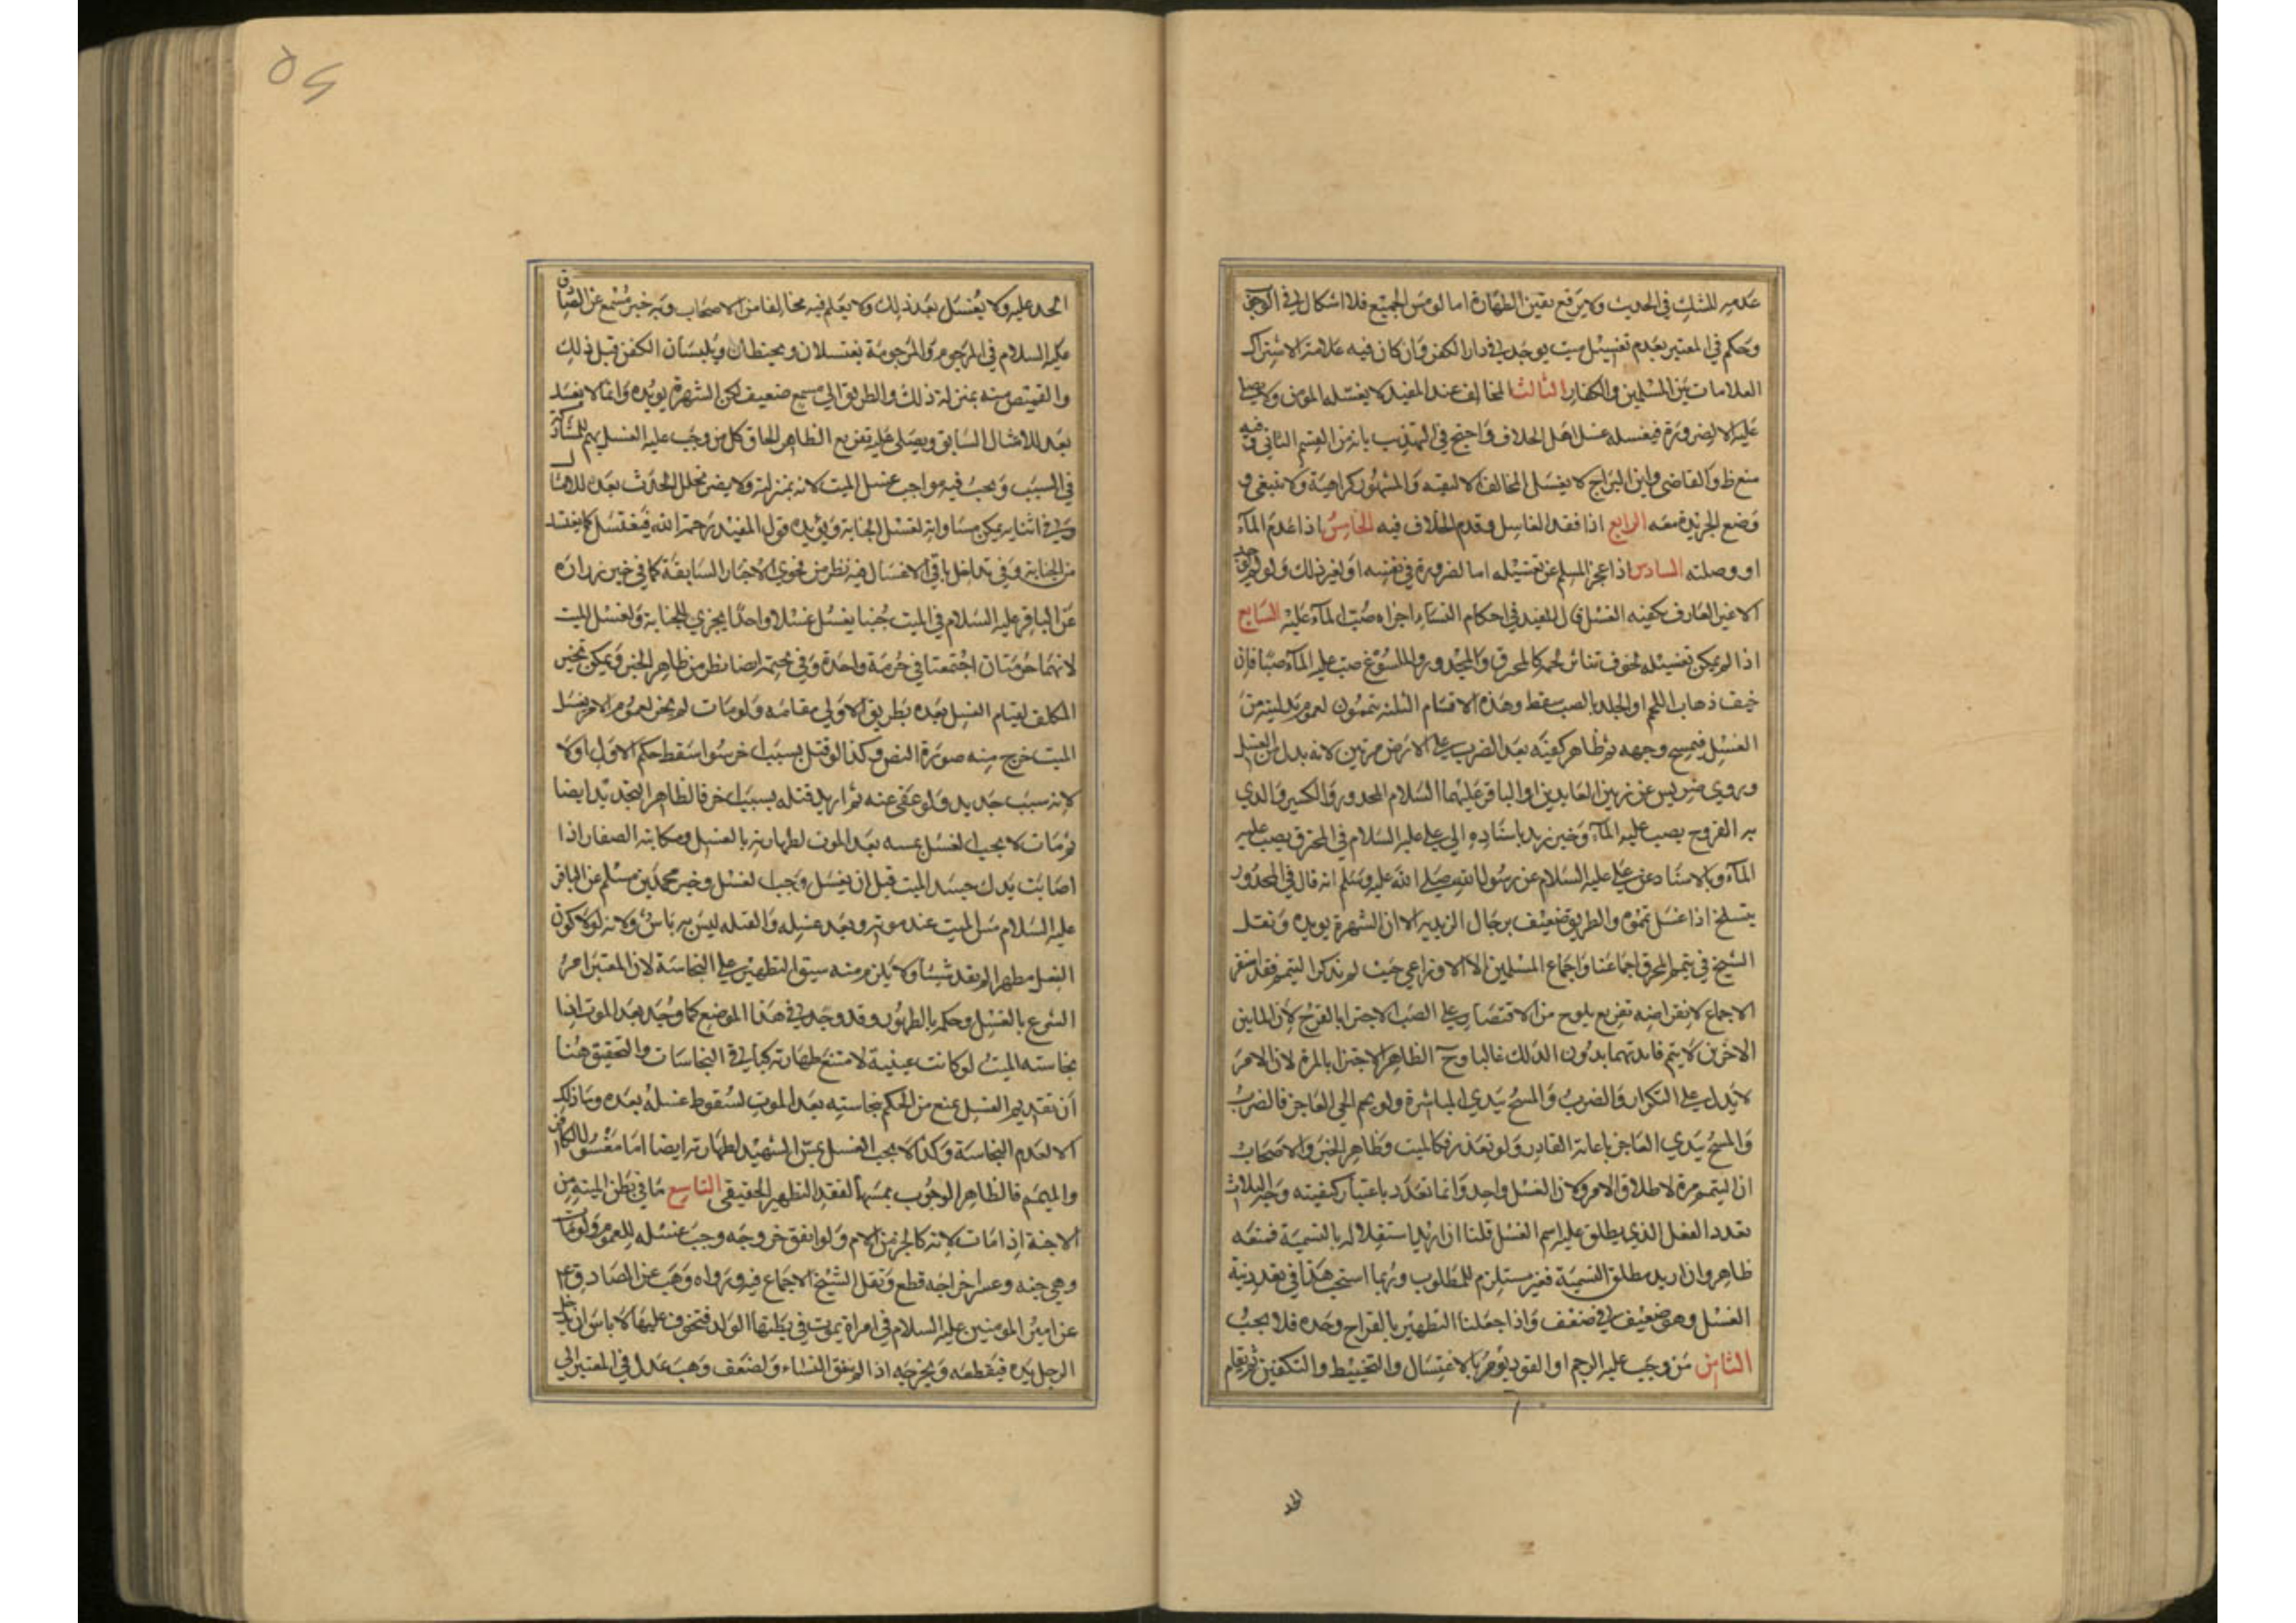 عدمه للشك في الحدث ولا يرفع يقين الطهارة اما لو مس الجميع فلا اشكال في الوجوب
وحكم في المعتبر بعدم تغسيل ميت يوجد في دار الكفر وان كان فيه علامة الاشتراك
العلامات بين المسلمين والكفار الثالث المخالف عند المفيد لا يغسله المومن ولا يصلي
عليه الا لضرورة فيغسله غسل اهل الخلاف واحتج في التهذيب بانه من القسم الثاني وفيه
منع ظ والقاضي وابن البراج لا يغسل المخالف الا لتقيه والمشهور كراهية ولا ينبغي
وضع الجريدة معه الرابع اذا فقد الغاسل وقدم الخلاف فيه الخامس اذا عدم الماء
او وصلته السادس اذا عجز المسلم عن تغسيله اما لضرورة في نفسه او لغير ذلك ولو لم يوجد
الا غير العارف بكيفيه الغسل قال المفيد في احكام النساء اجزاه صب الماء عليه السابع
اذا لم يمكن تغسيله لخوف تناثر لحمه كالمحرق والمجدور والملسوع صب عليه الماء صبا فان
خيف ذهاب اللحم او الجلد بالصب سقط وهذه الاقسام الثلثه ييممون لعموم بدليته من
الغسل فيمسح وجهه ثم ظاهر كفيه بعد الضرب على الارض مرتين لانه بدل من الغسل
وروي ضريس عن زين العابدين او الباقر عليهما السلام المجدور والكسير والذي
به القروح يصب عليه الماء وخبر زيد باسناده الي علي عليه السلام في المحترق يصب عليه
الماء وبالاسناد عن علي عليه السلام عن رسول الله صلى الله عليه وسلم انه قال في المجدور
يتسلخ اذا غسل تمموه والطريق ضعيف برجال الزيديه الا ان الشهرة يويده ونقل
الشيخ في تيمم المحرق اجماعنا واجماع المسلمين الا الاوزاعي حيث لم يذكر التيمم فقد استقر
الاجماع لانقراضه تفريع يلوح من الاقتصار على الصب الاجتزا بالقرح لان المايين
الاخرين لا يتم فايدتهما بدون الدلك غالبا وح الظاهر الاجتزا بالمرة لان الامر
لا يدل على التكرار والضرب والمسح بيدي المباشرة ولو يمم الحي العاجز فالضرب
والمسح بيدي العاجز باعانة القادر ولو تعذر فكالميت وظاهر الخبر والاصحاب
ان التيمم مرة لاطلاق الامر ولان الغسل واحد وانما تعدد باعتبار كيفيته وخبر الثلاث
تعدد الفعل الذي يطلق عليه اسم الغسل قلنا ان اريد استقلاله بالتسمية فمنعه
ظاهر وان اريد مطلق التسمية فغير مستلزم للمطلوب وربما استحب هذا في تعدد نية
الغسل وهو ضعيف في ضعف واذا جعلنا التطهير بالقراح وحده فلا يجب
الثامن من وجب عليه الرجم او القود يومر بالاغتسال والتحنيط والتكفين ثم يقام
الحد
٥٩
الحد عليه ولا يغسل بعد ذلك ولا يعلم فيه مخالفا من الاصحاب وبه خبر مسمع عن الصادق
عليه السلام في المرجوم والمرجومة يغتسلان ويحنطان ويلبسان الكفن قبل ذلك
والمقتص منه بمنزلة ذلك والطريق الي مسمع ضعيف لكن الشهرة يويده وانما لا يغسل
بعد للامتثال السابق ويصلى عليه تفريع الظاهر الحاق كل من وجب عليه القتل بهم للمشاركة
في السبب ويجب فيه مواجب غسل الميت لانه بمنزلته ولا يضر تخلل الحدث بعده
وفي اثنايه يمكن مساواته لغسل الجنابة ويؤيده قول المفيد رحمة الله فيغتسل كما يغتسل
من الجنابة وفي تداخل باقي الاغسال فيه نظر من فحوي الاخبار السابقة كما في خبر زرارة
عن الباقر عليه السلام في الميت جنبا يغسل غسلا واحدا يجزي للجنابة ولغسل الميت
لانهما حرمتان اجتمعتا في حرمة واحدة وفي تحتمه ايضا نظر من ظاهر الخبر ويمكن تخيير
المكلف لقيام الغسل بعده بطريق الاولي مقامه ولو مات لم يجز لعموم الامر بغسل
الميت خرج منه صورة النص وكذا لو قتل بسبب اخر سوا سقط حكم الاول او لا
لانه سبب جديد ولو عفى عنه ثم اريد قتله بسبب اخر فالظاهر التجديد ايضا
ثم مات لا يجب الغسل بمسه بعد الموت لطهارته بالغسل ومكاتبة الصفار اذا
اصابت يدك جسد الميت قبل ان يغسل وجب الغسل وخبر محمد بن مسلم عن الباقر
عليه السلام مس الميت عند موته وبعد غسله والقبله ليس به باس ولانه لولا كون
الغسل مطهرا لم يفد شيئا ولا يلزم منه سبق التطهير على النجاسة لان المعتبر امر
الشرع بالغسل وحكمه بالطهور وقد وجد في هذا الموضع كما وجد بعد الموت
نجاسته الميت لو كانت عينية لامتنع طهارته كباقي النجاسات والتحقيق هنا
ان تقديم الغسل يمنع من الحكم بنجاسته بعد الموت لسقوط غسله بعده وما ذلك
الا لعدم النجاسة وكذا لا يجب الغسل بمس الشهيد لطهارته ايضا اما مغسول الكافر
والميمم فالظاهر الوجوب بمسهما لفقد التطهير الحقيقي التاسع ما في بطن الميتة من
الاجنة اذا مات لانه كالجزء من الام ولو اتفق خروجه وجب غسله للعموم ولو مات
وهي حية وعسر اخراجه قطع ونقل الشيخ الاجماع فيه ورواه وهب عن الصادق ع
عن امير المومنين عليه السلام في امراة يموت في بطنها الولد فتخوف عليها لا باس ان يدخل
الرجل يده فيقطعه ويخرجه اذا لم يتفق النساء ولضعف وهب عدل في المعتبر الي